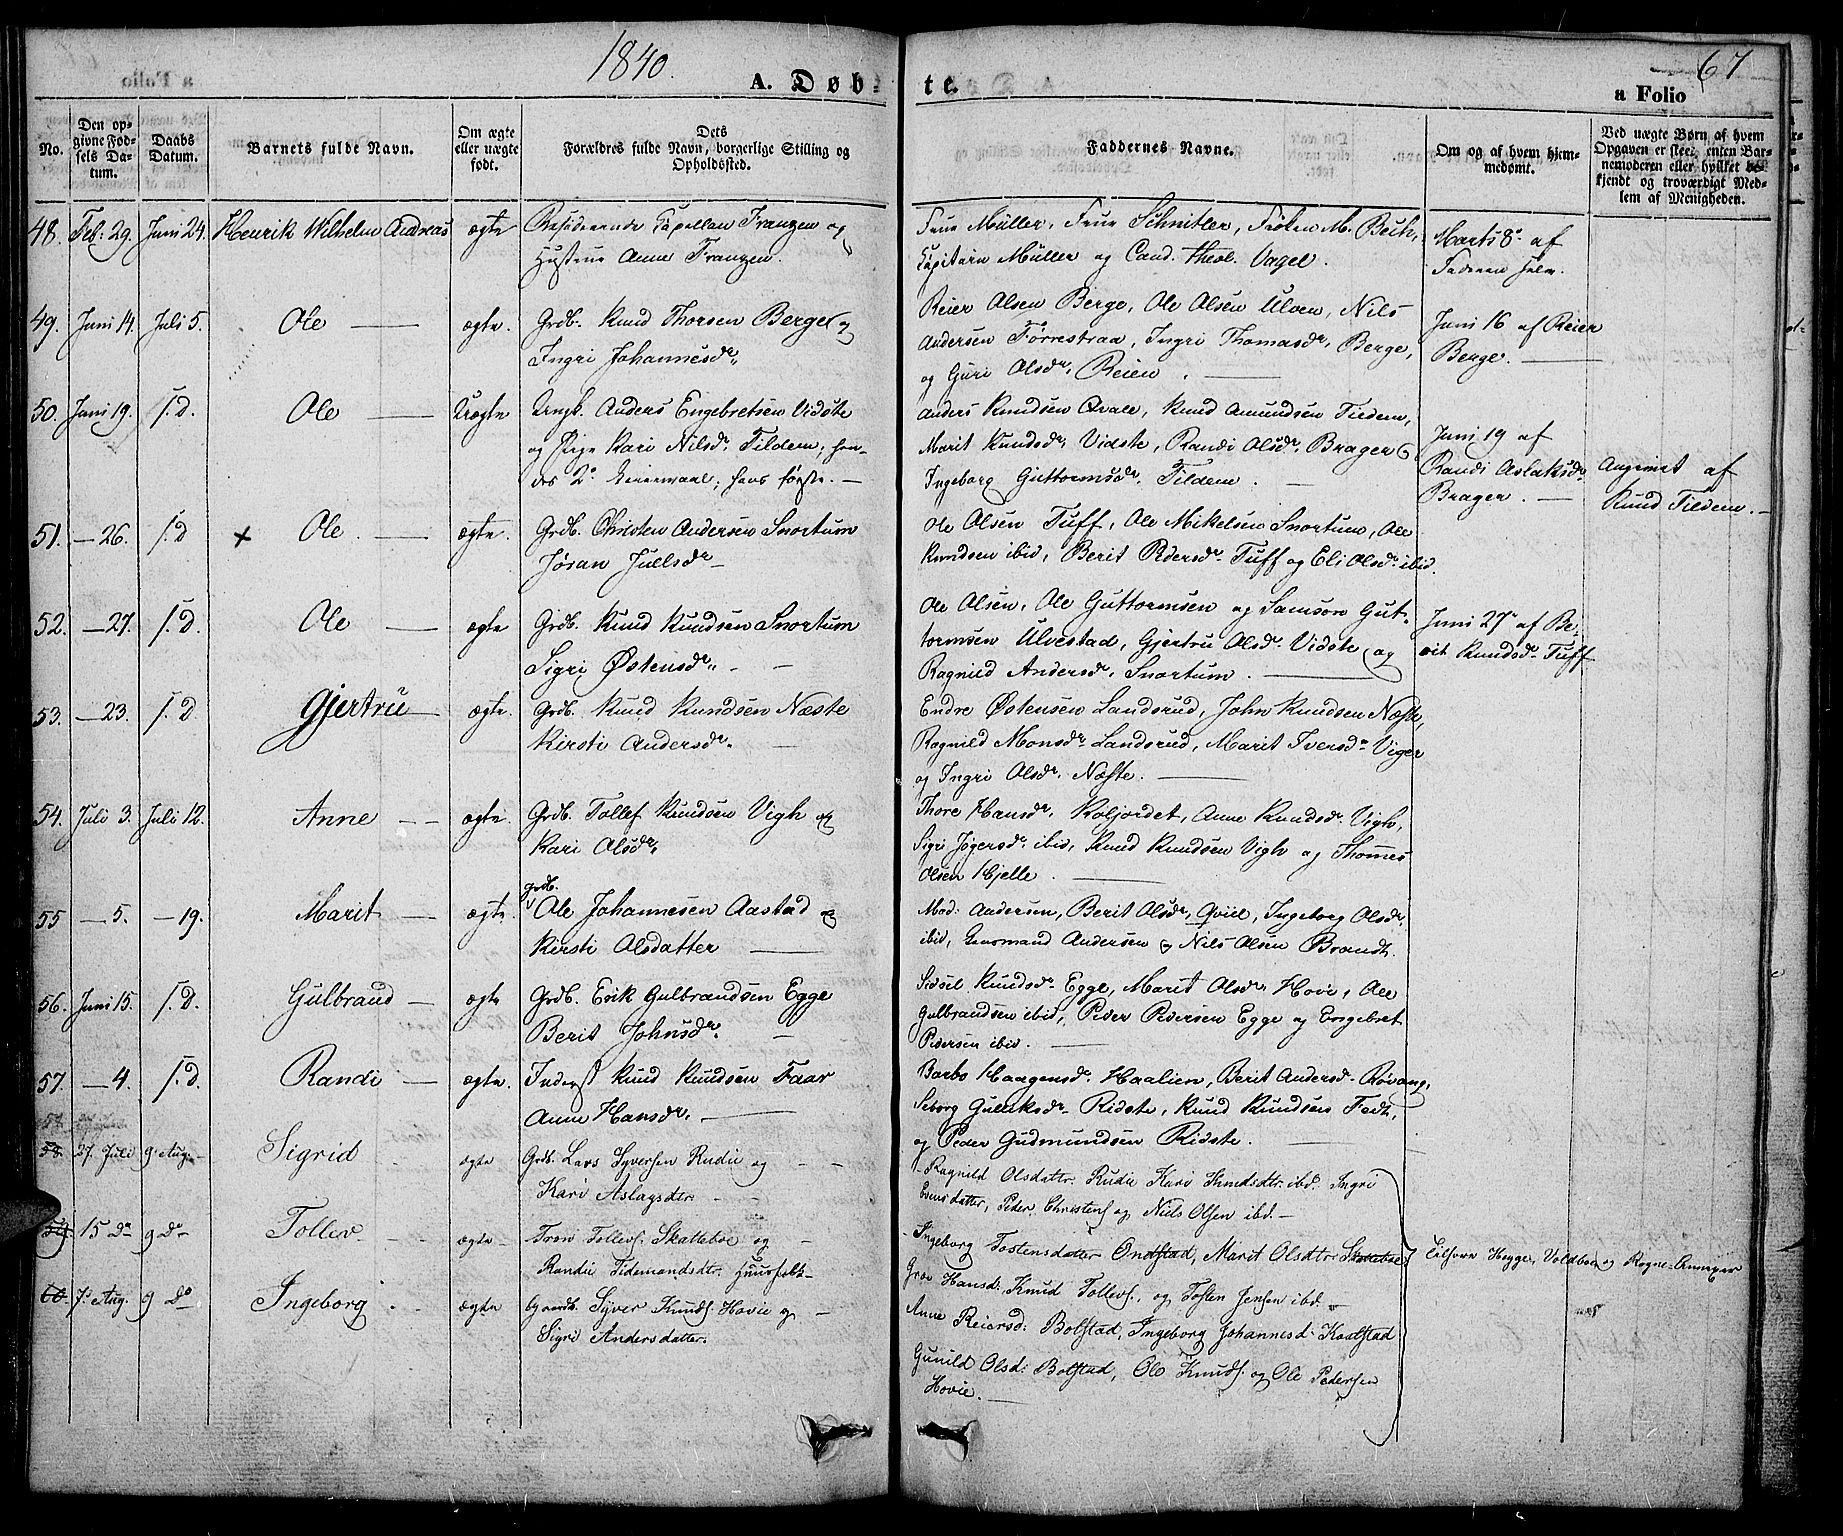 1840.
A. Døb-
te.
67
a Folio
No.
Den op-
givne Fød-
sels Da-
tum.
Daabs
Datum.
Barnets fulde Navn.
Om ægte
eller uægte
født.
Dets
Forældres fulde Navn, borgerlige Stilling og
Opholdssted.
Faddernes Navne.
Om og af hvem hjem-
medøbt.
Ved uægte Børn af hvem
Opgaven er skeet, enten Bar-
nemoderen eller hvilket be-
kjendt og troværdigt Med-
lem af Menigheden.
48. Feb: 29. Juni 24. Henrik Wilhelm Andreas ægte Residerende Capellan Franzen og
Hustrue Anne Franzen.
Frue Müller, Frue Schmitler, Frøken M. Bech,
Capitain Müller og Cand. theol. Vagel.
Marts 8de af
Faderen selv.
49. Juni 14. Juli 5. Ole ægte. Grdb. Knud Thorsen Berge og
Ingri Johannesdr.
Reier Olsen Berge, Ole Olsen Ulven, Nils
Andersen Førrestraa, Ingri Thomasdr. Berge,
og Guri Olsdr. Reien.
Juni 16 af Reier
Berge.
50. Juni 19. s.D. Ole Uægte Ungk. Anders Engebretsen Vidste
og Pige Kari Nilsdr. Tildem; hen-
des 2det Leiermaal; hans første.
Anders Knudsen Qvale, Knud Amundsen Tildem,
Marit Knudsdr. Vidste, Randi Olsdr. Brager,
Ingeborg Guttormsdr. Tildem.
Juni 19 af
Randi Aslaksdr.
Brager.
Angivet af
Knud Tildem.
51. — 26. s.D. × Ole. ægte. Grdb. Christen Andersen Snortum
Jøran Juelsdr.
Ole Olsen Tuff, Ole Mikelsen Snortum, Ole
Knudsen ibid, Berit Pedersdr. Tuff og Eli Olsdr. ibid.
52. — 27. s.D. Ole ægte Grdb. Knud Knudsen Snortum
Sigri Østensdr.
Ole Olsen, Ole Guttormsen og Samson Gut-
tormsen Ulvestad, Gjertru Olsdr. Vidste og
Ragnild Andersdr. Snortum.
Juni 27de af Be-
rit Knudsdr. Tuff
53. — 23. s.D. Gjertru ægte. Grdb. Knud Knudsen Næste
Kirsti Andersdr.
Endre Østensen Landsrud, John Knudsen Næste,
Ragnild Monsdr. Landsrud, Marit Iversdr. Viger
og Ingri Olsdr. Næste.
54. Juli 3. Juli 12. Anne ægte. Grdb. Tollef Knudsen Vigh og
Kari Olsdr.
Thore Hansdr. Koljordet, Anne Knudsdr. Vigh,
Sigri ibid, Knud Knudsen Vigh og Thomes
Olsen Hjelle.
55 — 5. — 19. Marit ægte. Grdb. Ole Johannesen Aastad og
Kirsti Olsdatter
Mad: Andersen, Berit Olsdr. Qviel, Ingeborg Olsdr.
ibid, Gudmand Andersen og Nils Olsen Brandt.
56. Juni 15. s.D. Gulbrand ægte Grdb. Erik Gulbrandsen Egge
Berit Johnsdr.
Sidsel Knudsdr. Egge, Marit Olsdr. Hovi, Ole
Gulbrandsen ibid, Peder Pedersen Egge og Engebret
Pedersen ibid.
57. — 4. s.D. Randi ægte. Inderst Knud Knudsen Faar
Anne Hansdr.
Barbo Haagensdr. Haalien, Berit Andersdr. Røvang,
Seborg Gulliksdr. Ridste, Knud Knudsen Fedt,
og Peder Gudmundsen Ridste.
58. 27. Juli 9. Aug. Sigrid ægte Grdb. Lars Syversen Rudie og
Kari Aslagsdtr.
Ragnild Olsdatter Rudie Kari Knudsdtr. ibd. Ingri
Evensdatter, Peder Christens. og Niels Olsen ibd.
59 15 Do 9 Do Tollev ægte Trøn Tollevs. Skattebøe og
Randie Tidemandsdtr. Huusfolk
Ingeborg Tostensdatter Onstad, Marit Olsdtr. Skattebøe,
Groe Hansd: Knud Tollevs., og Tosten Jensen ibd.
Tilhøre Hegge, Voldboe og Rogne-Annexer
60. 7. Aug. 9 Do Ingeborg ægte Grdb. Syver Knuds. Hovie og
Sigri Andersdatter.
Anne Reiersd: Bolstad, Ingeborg Johannesd: Kaalstad
Gunild Olsd: Bolstad, Ole Knuds. og Ole Pedersen
Hovie.